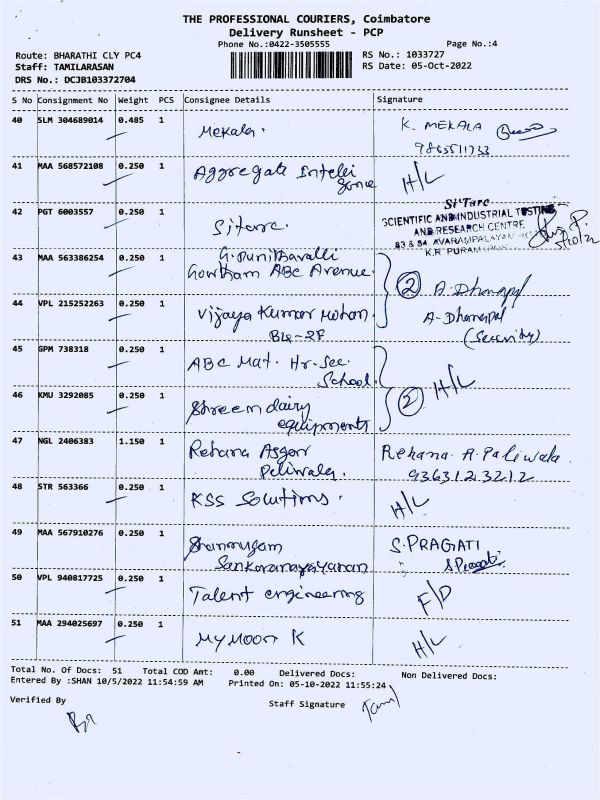 THE PROFESSIONAL COURIERS, Coimbatore
Delivery Runsheet - PCP
Phone No.:0422-3505555
Page No.:4
Route: BHARATHI CLY PC4
RS No.: 1033727
Staff: TAMILARASAN
RS Date: 05-Oct-2022
DRS No.: DCJB103372704
S No Consignment No Weight PCS Consignee Details Signature
40 SLM 304689014 0.485 1 Mekala. K. MEKALA
9865511733
41 MAA 568572108 0.250 1 Aggregate Intelli H/L
gence
42 PGT 6003557 0.250 1 Sitarc.
Si'Tarc
SCIENTIFIC AND INDUSTRIAL TESTING
AND RESEARCH CENTRE
83 & 84, AVARAMPALAYAM
K.R PURAM
43 MAA 563386254 0.250 1 G. Punithavalli
Gowtham ABC Avenue. 2 A. Dhanapal
44 VPL 215252263 0.250 1 Vijaya Kumar Mohan. A-Dhanapal
B12-2F (Security)
45 GPM 738318 0.250 1 ABC Mat. Hr. Sec.
School. 2 H/L
46 KMU 3292085 0.250 1 Shreem dairy
equipments
47 NGL 2406383 1.150 1 Rehana Asger Rehana. A. Paliwala
Paliwala. 9363123212
48 STR 563366 0.250 1 KSS Solutions. H/L
49 MAA 567910276 0.250 1 Shanmugam S. PRAGATI
Sankaranarayanan S Pragati
50 VPL 940817725 0.250 1 Talent engineering F/D
51 MAA 294025697 0.250 1 MYMOON K H/L
Total No. Of Docs: 51 Total COD Amt: 0.00 Delivered Docs: Non Delivered Docs:
Entered By :SHAN 10/5/2022 11:54:59 AM Printed On: 05-10-2022 11:55:24
Verified By Staff Signature